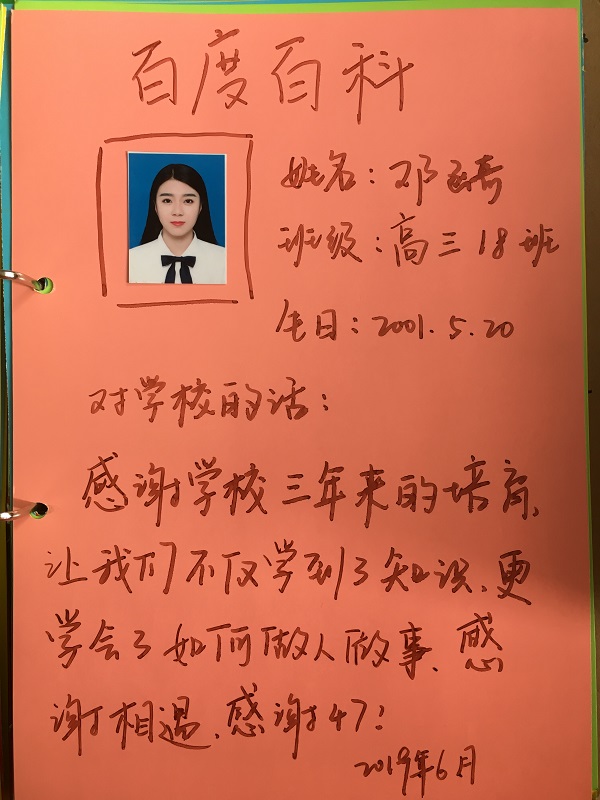 百度百科
姓名：邓玉奇
班级：高三18班
生日：2001.5.20
对学校的话：
感谢学校三年来的培育、
让我们不仅学到了知识、更
学会了如何做人做事、感
谢相遇、感谢47！
2019年6月